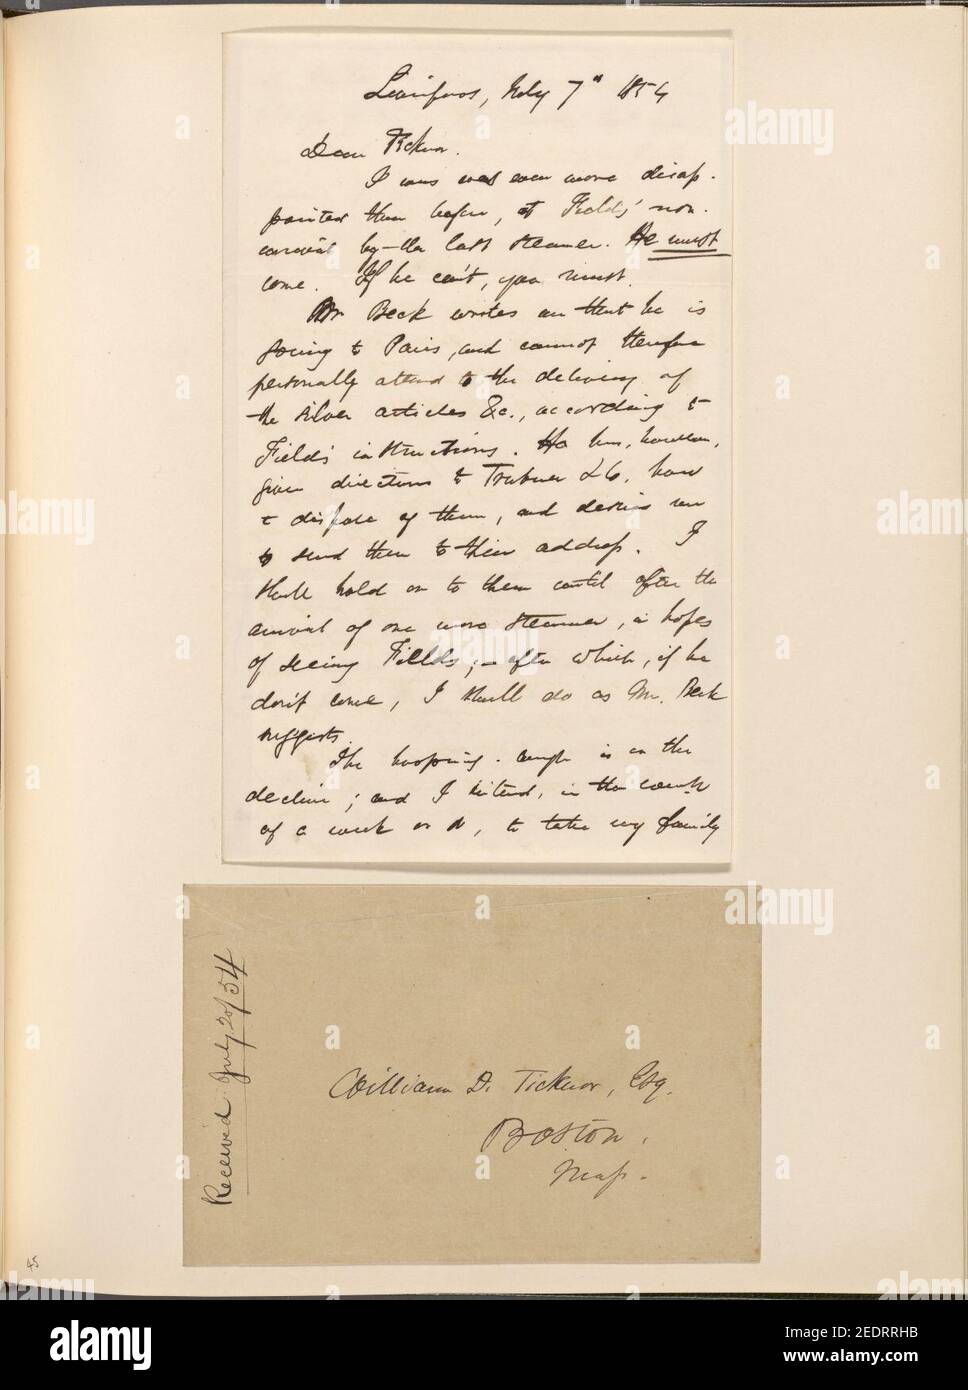 Liverpool, July 7th 1854
Dear Ticknor.
I was even more disap-
pointed than before, at Fields' non-
arrival by the last steamer. He must
come. If he can't, you must.
Mr Beck writes me that he is
going to Paris, and cannot therefore
personally attend to the delivery of
the silver articles &c., according to
Field's instructions. He has, however,
given directions to Trubner & Co, how
to dispose of them, and desires me
to send them to their address. I
shall hold on to them until after the
arrival of one more steamer, in hopes
of seeing Fields;—after which, if he
don't come, I shall do as Mr. Beck
suggests.
The hooping-cough is on the
decline; and I intend, in the course
of a week or so, to take my family
Received July 20/54
William D. Ticknor, Esq.
Boston,
Mass.
45
alamy
Image ID: 2EDRRHB
www.alamy.com